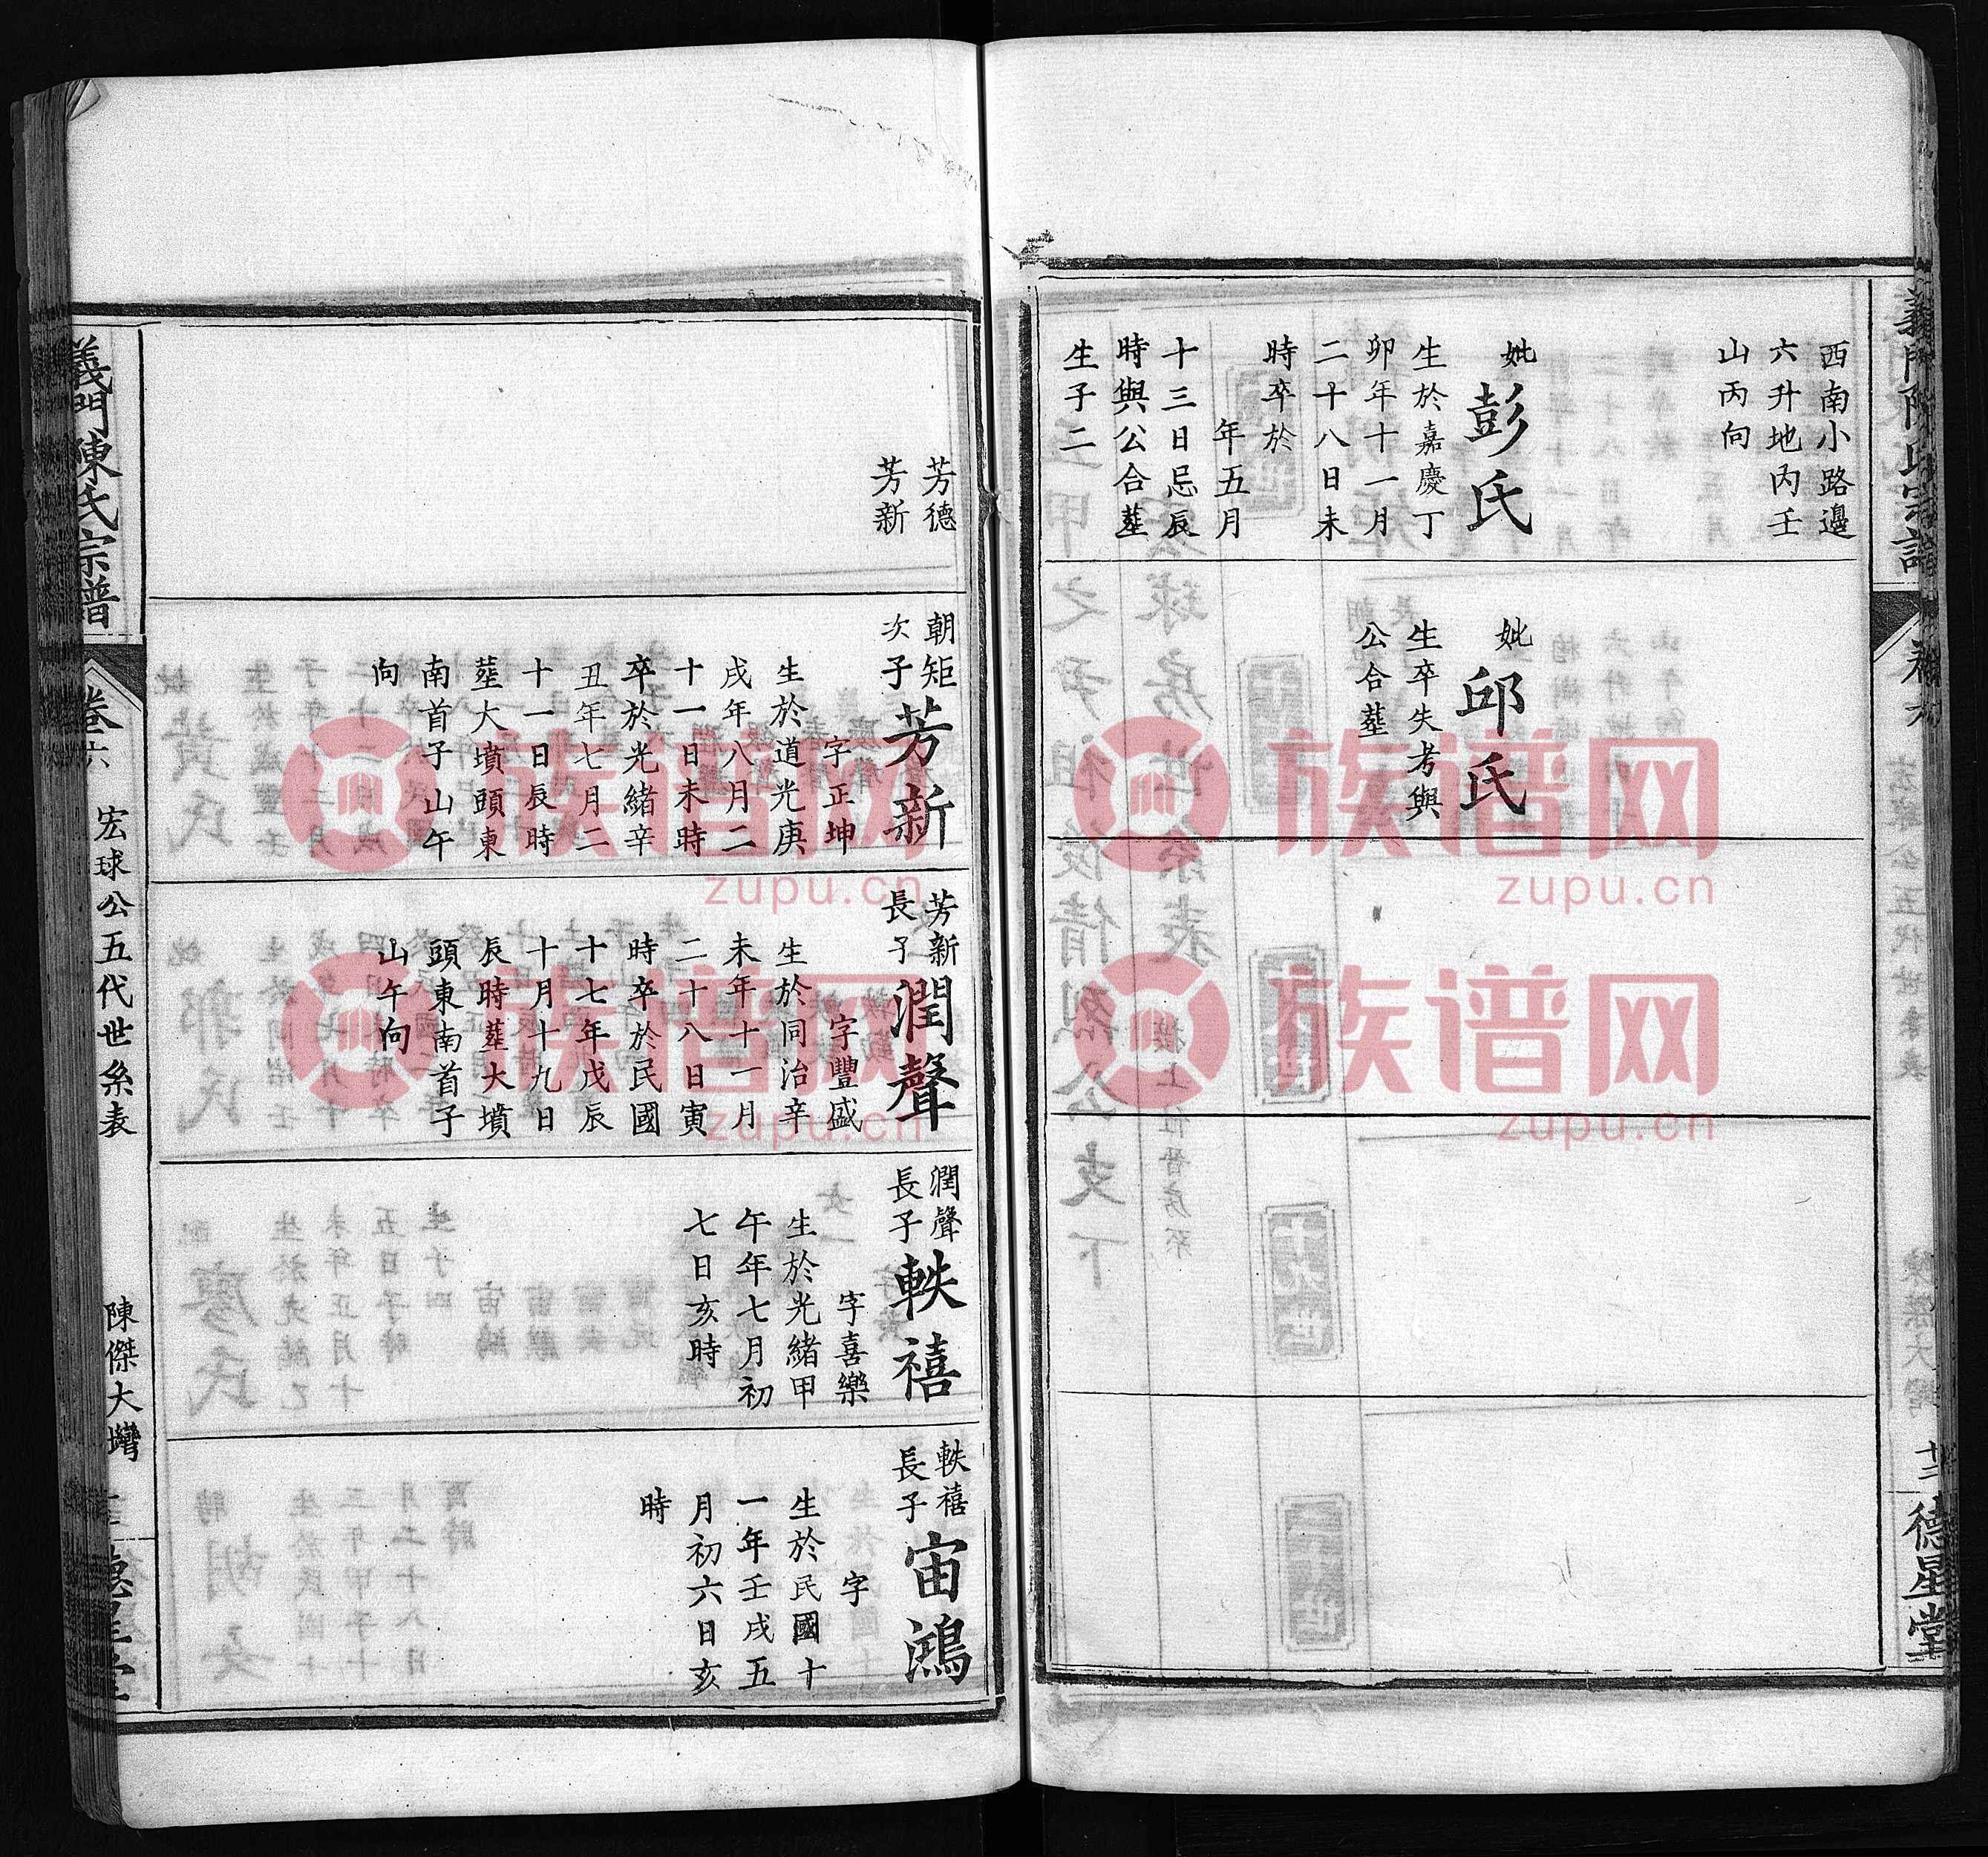 義門陳氏宗譜
卷六
十二
德星堂
西南小路邊
六升地內壬
山丙向
妣
彭氏
生於嘉慶丁
卯年十一月
二十八日未
時卒於
年五月
十三日忌辰
時與公合塟
生子二
妣
邱氏
生卒失考與
公合塟
芳德
芳新
朝矩
次子
芳新
字正坤
生於道光庚
戌年八月二
十一日未時
卒於光緒辛
丑年七月二
十一日辰時
塟大墳頭東
南首子山午
向
芳新
長子
潤聲
字豐盛
生於同治辛
未年十一月
二十八日寅
時卒於民國
十七年戊辰
十月十九日
辰時塟大墳
頭東南首子
山午向
潤聲
長子
軼禧
字喜樂
生於光緒甲
午年七月初
七日亥時
軼禧
長子
宙鴻
字
生於民國十
一年壬戌五
月初六日亥
時
義門陳氏宗譜
卷六
宏球公五代世系表
陳傑大塆
德星堂
族谱网
zupu.cn
族谱网
zupu.cn
族谱网
zupu.cn
族谱网
zupu.cn